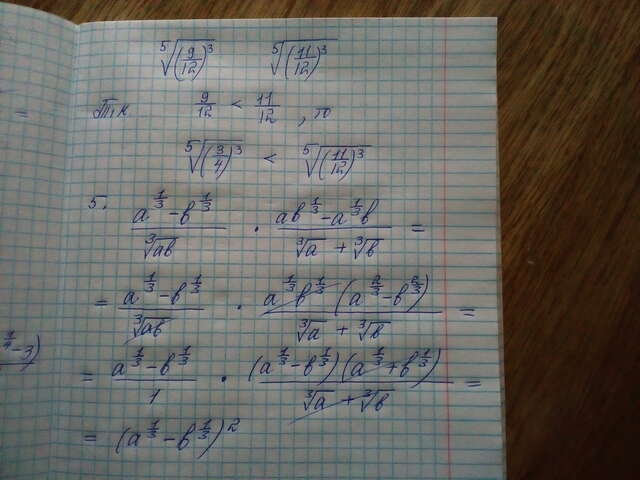 ⁵√(9/12)³   ⁵√(11/12)³
Т.к   9/12 < 11/12 , то
⁵√(3/4)³ < ⁵√(11/12)³
5. (a^(1/3) - b^(1/3))/∛ab · (ab^(1/3) - a^(1/3)b)/(∛a + ∛b) =
= (a^(1/3) - b^(1/3))/∛ab · a^(1/3)b^(1/3)(a^(2/3) - b^(2/3))/(∛a + ∛b) =
= (a^(1/3) - b^(1/3))/1 · (a^(1/3) - b^(1/3))(a^(1/3) + b^(1/3))/(∛a + ∛b) =
= (a^(1/3) - b^(1/3))²